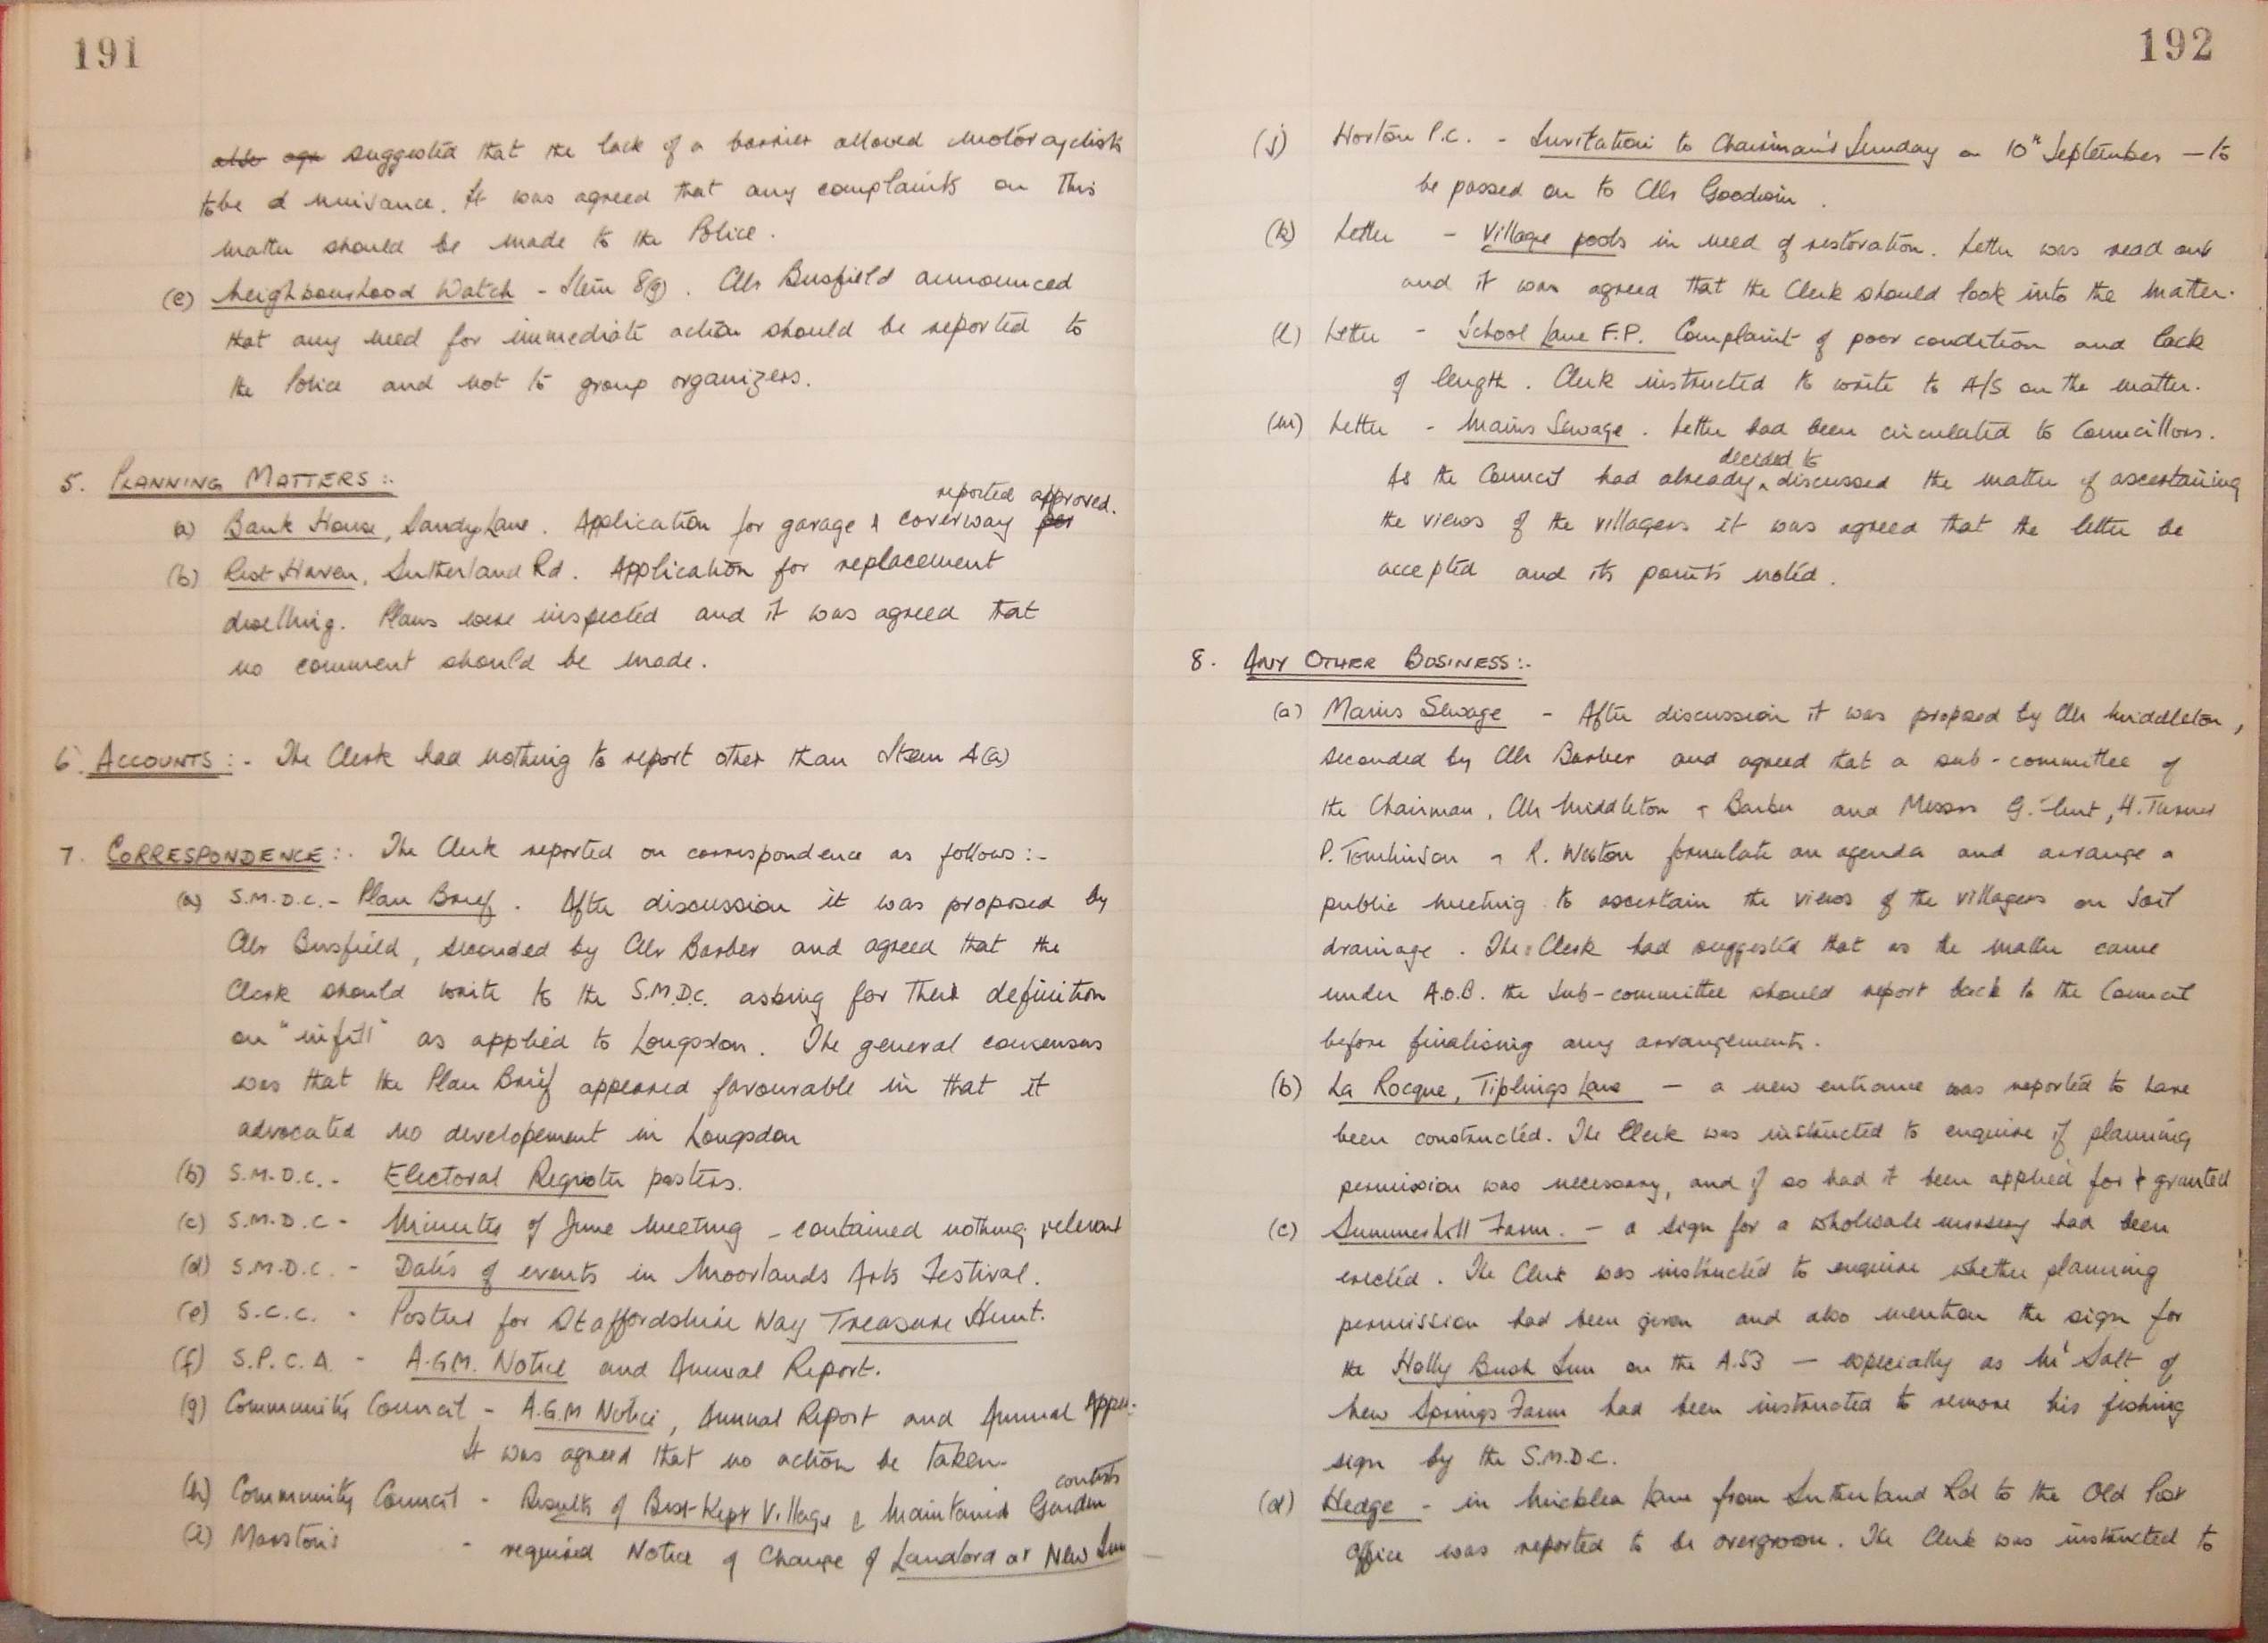 191
~~also agr~~ suggested that the lack of a barrier allowed motorcyclists
to be a nuisance. It was agreed that any complaints on this
matter should be made to the Police.
(e) Neighbourhood Watch - Item 8(g). Cllr Busfield announced
that any need for immediate action should be reported to
the Police and not to group organizers.
5. PLANNING MATTERS:-
reported approved.
a) Bank House, Sandy Lane. Application for garage & coverway ~~per~~
(b) Rest Haven, Sutherland Rd. Application for replacement
dwelling. Plans were inspected and it was agreed that
no comment should be made.
6. ACCOUNTS:- The Clerk had nothing to report other than Item 4(a)
7. CORRESPONDENCE:- The Clerk reported on correspondence as follows:-
(a) S.M.D.C. - Plan Brief. After discussion it was proposed by
Cllr Busfield, seconded by Cllr Barber and agreed that the
Clerk should write to the S.M.D.C. asking for their definition
on "infill" as applied to Longsdon. The general consensus
was that the Plan Brief appeared favourable in that it
advocated no developement in Longsdon
(b) S.M.D.C. - Electoral Register posters.
(c) S.M.D.C - Minutes of June Meeting - contained nothing relevant
(d) S.M.D.C. - Dates of events in Moorlands Arts Festival.
(e) S.C.C. - Posters for Staffordshire Way Treasure Hunt.
(f) S.P.C.A. - A.G.M. Notice and Annual Report.
(g) Community Council - A.G.M Notice, Annual Report and Annual Appeal.
It was agreed that no action be taken.
contests
(h) Community Council - Results of Best Kept Village & Maintained Garden
(i) Marston's - required Notice of Change of Landlord at New Inn
192
(j) Horton P.C. - Invitation to Chairman's Sunday on 10th September - to
be passed on to Cllr Goodwin.
(k) Letter - Village pools in need of restoration. Letter was read out
and it was agreed that the Clerk should look into the matter.
(l) Letter - School Lane F.P. Complaint of poor condition and lack
of length. Clerk instructed to write to A/S on the matter.
(m) Letter - Mains Sewage. Letter had been circulated to Councillors.
decided to
As the Council had already ^ discussed the matter of ascertaining
the views of the villagers it was agreed that the letter be
accepted and its points noted.
8. ANY OTHER BUSINESS:-
(a) Mains Sewage - After discussion it was proposed by Cllr Middleton,
seconded by Cllr Barber and agreed that a sub-committee of
the Chairman, Cllr Middleton & Barber and Messrs G. H. Turner
P. Tomlinson & R. Weston formulate an agenda and arrange a
public meeting to ascertain the views of the villagers on soil
drainage. The Clerk had suggested that as the matter came
under A.O.B. the sub-committee should report back to the Council
before finalising any arrangements.
(b) La Rocque, Tiplings Lane - a new entrance was reported to have
been constructed. The Clerk was instructed to enquire if planning
permission was necessary, and if so had it been applied for & granted
(c) Summerhill Farm. - a sign for a wholesale nursery had been
erected. The Clerk was instructed to enquire whether planning
permission had been given and also mention the sign for
the Holly Bush Inn on the A.53 - especially as Mr Salt of
New Springs Farm had been instructed to remove his fishing
sign by the S.M.D.C.
(d) Hedge - in Micklea Lane from Sutherland Rd to the Old Post
Office was reported to be overgrown. The Clerk was instructed to